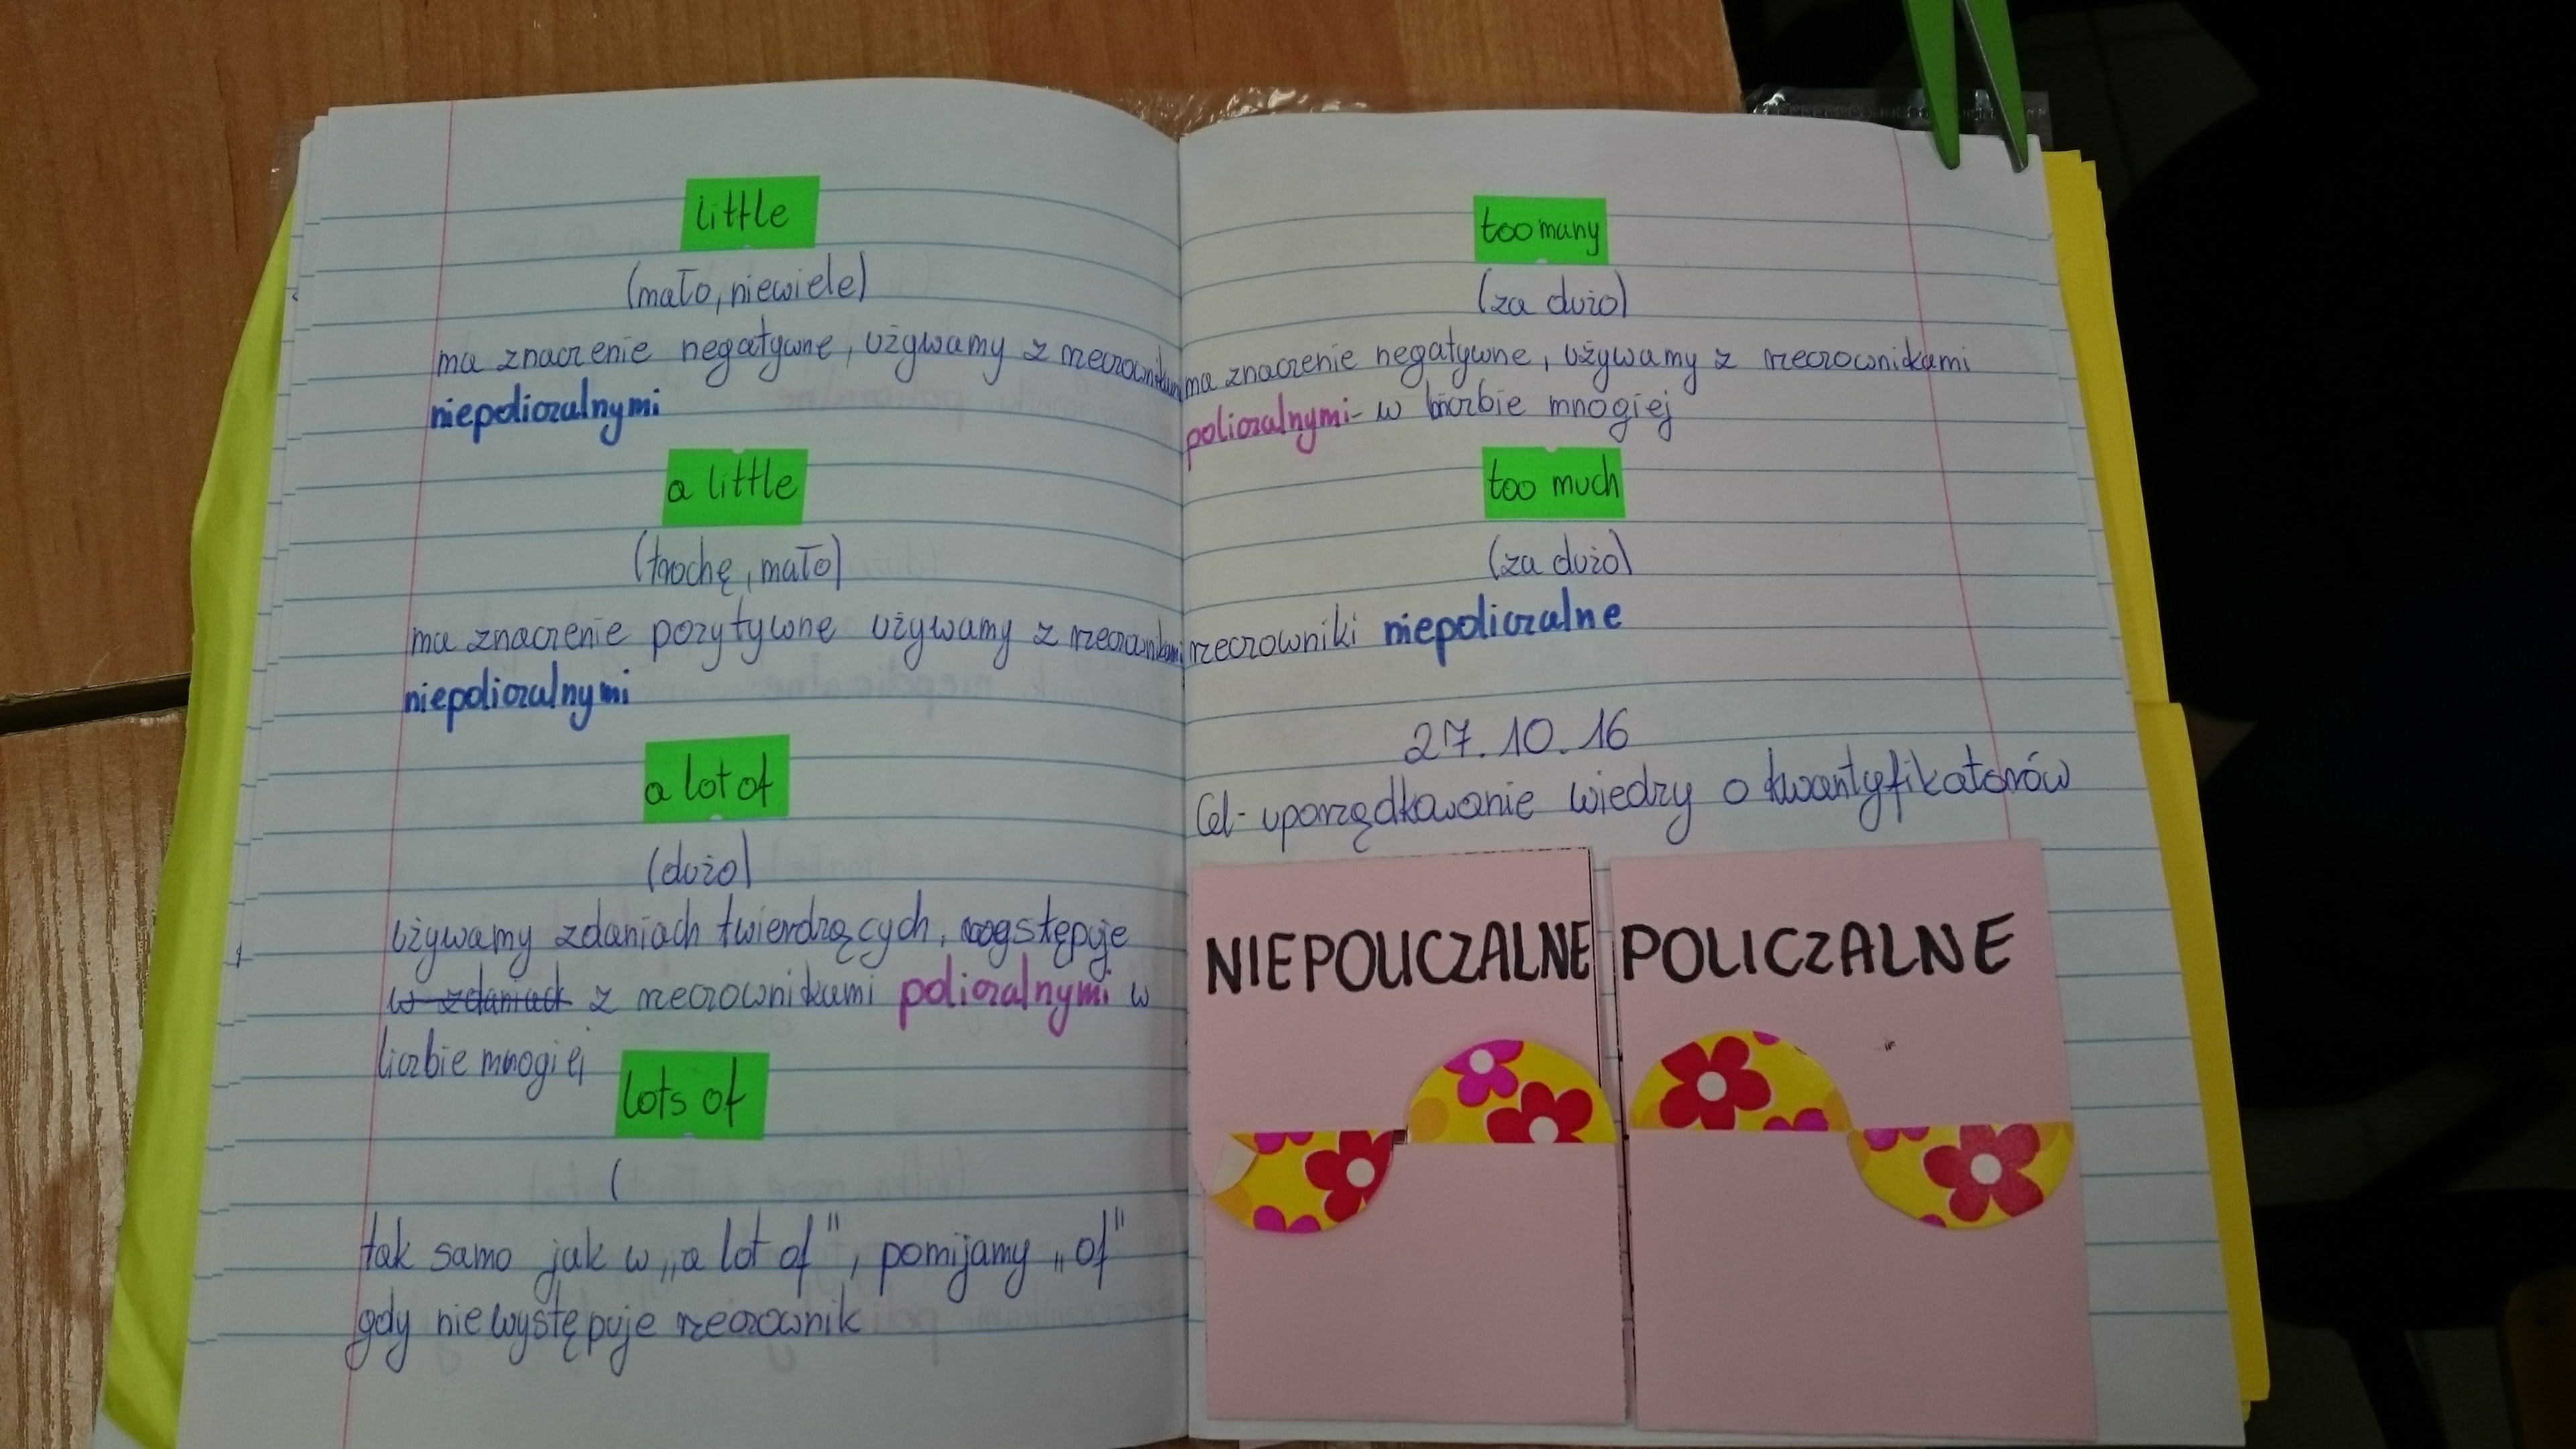 little
(mało, niewiele)
ma znaczenie negatywne, używamy z rzeczownikami
niepoliczalnymi
a little
(trochę, mało)
ma znaczenie pozytywne używamy z rzeczownikami
niepoliczalnymi
a lot of
(dużo)
używamy zdaniach twierdzących, występuje
w zdaniach z rzeczownikami policzalnymi w
liczbie mnogiej
lots of
(
tak samo jak w „a lot of", pomijamy „of"
gdy nie występuje rzeczownik
too many
(za dużo)
ma znaczenie negatywne, używamy z rzeczownikami
policzalnymi - w liczbie mnogiej
too much
(za dużo)
rzeczowniki niepoliczalne
27.10.16
Cel - uporządkowanie wiedzy o kwantyfikatorów
NIEPOLICZALNE
POLICZALNE